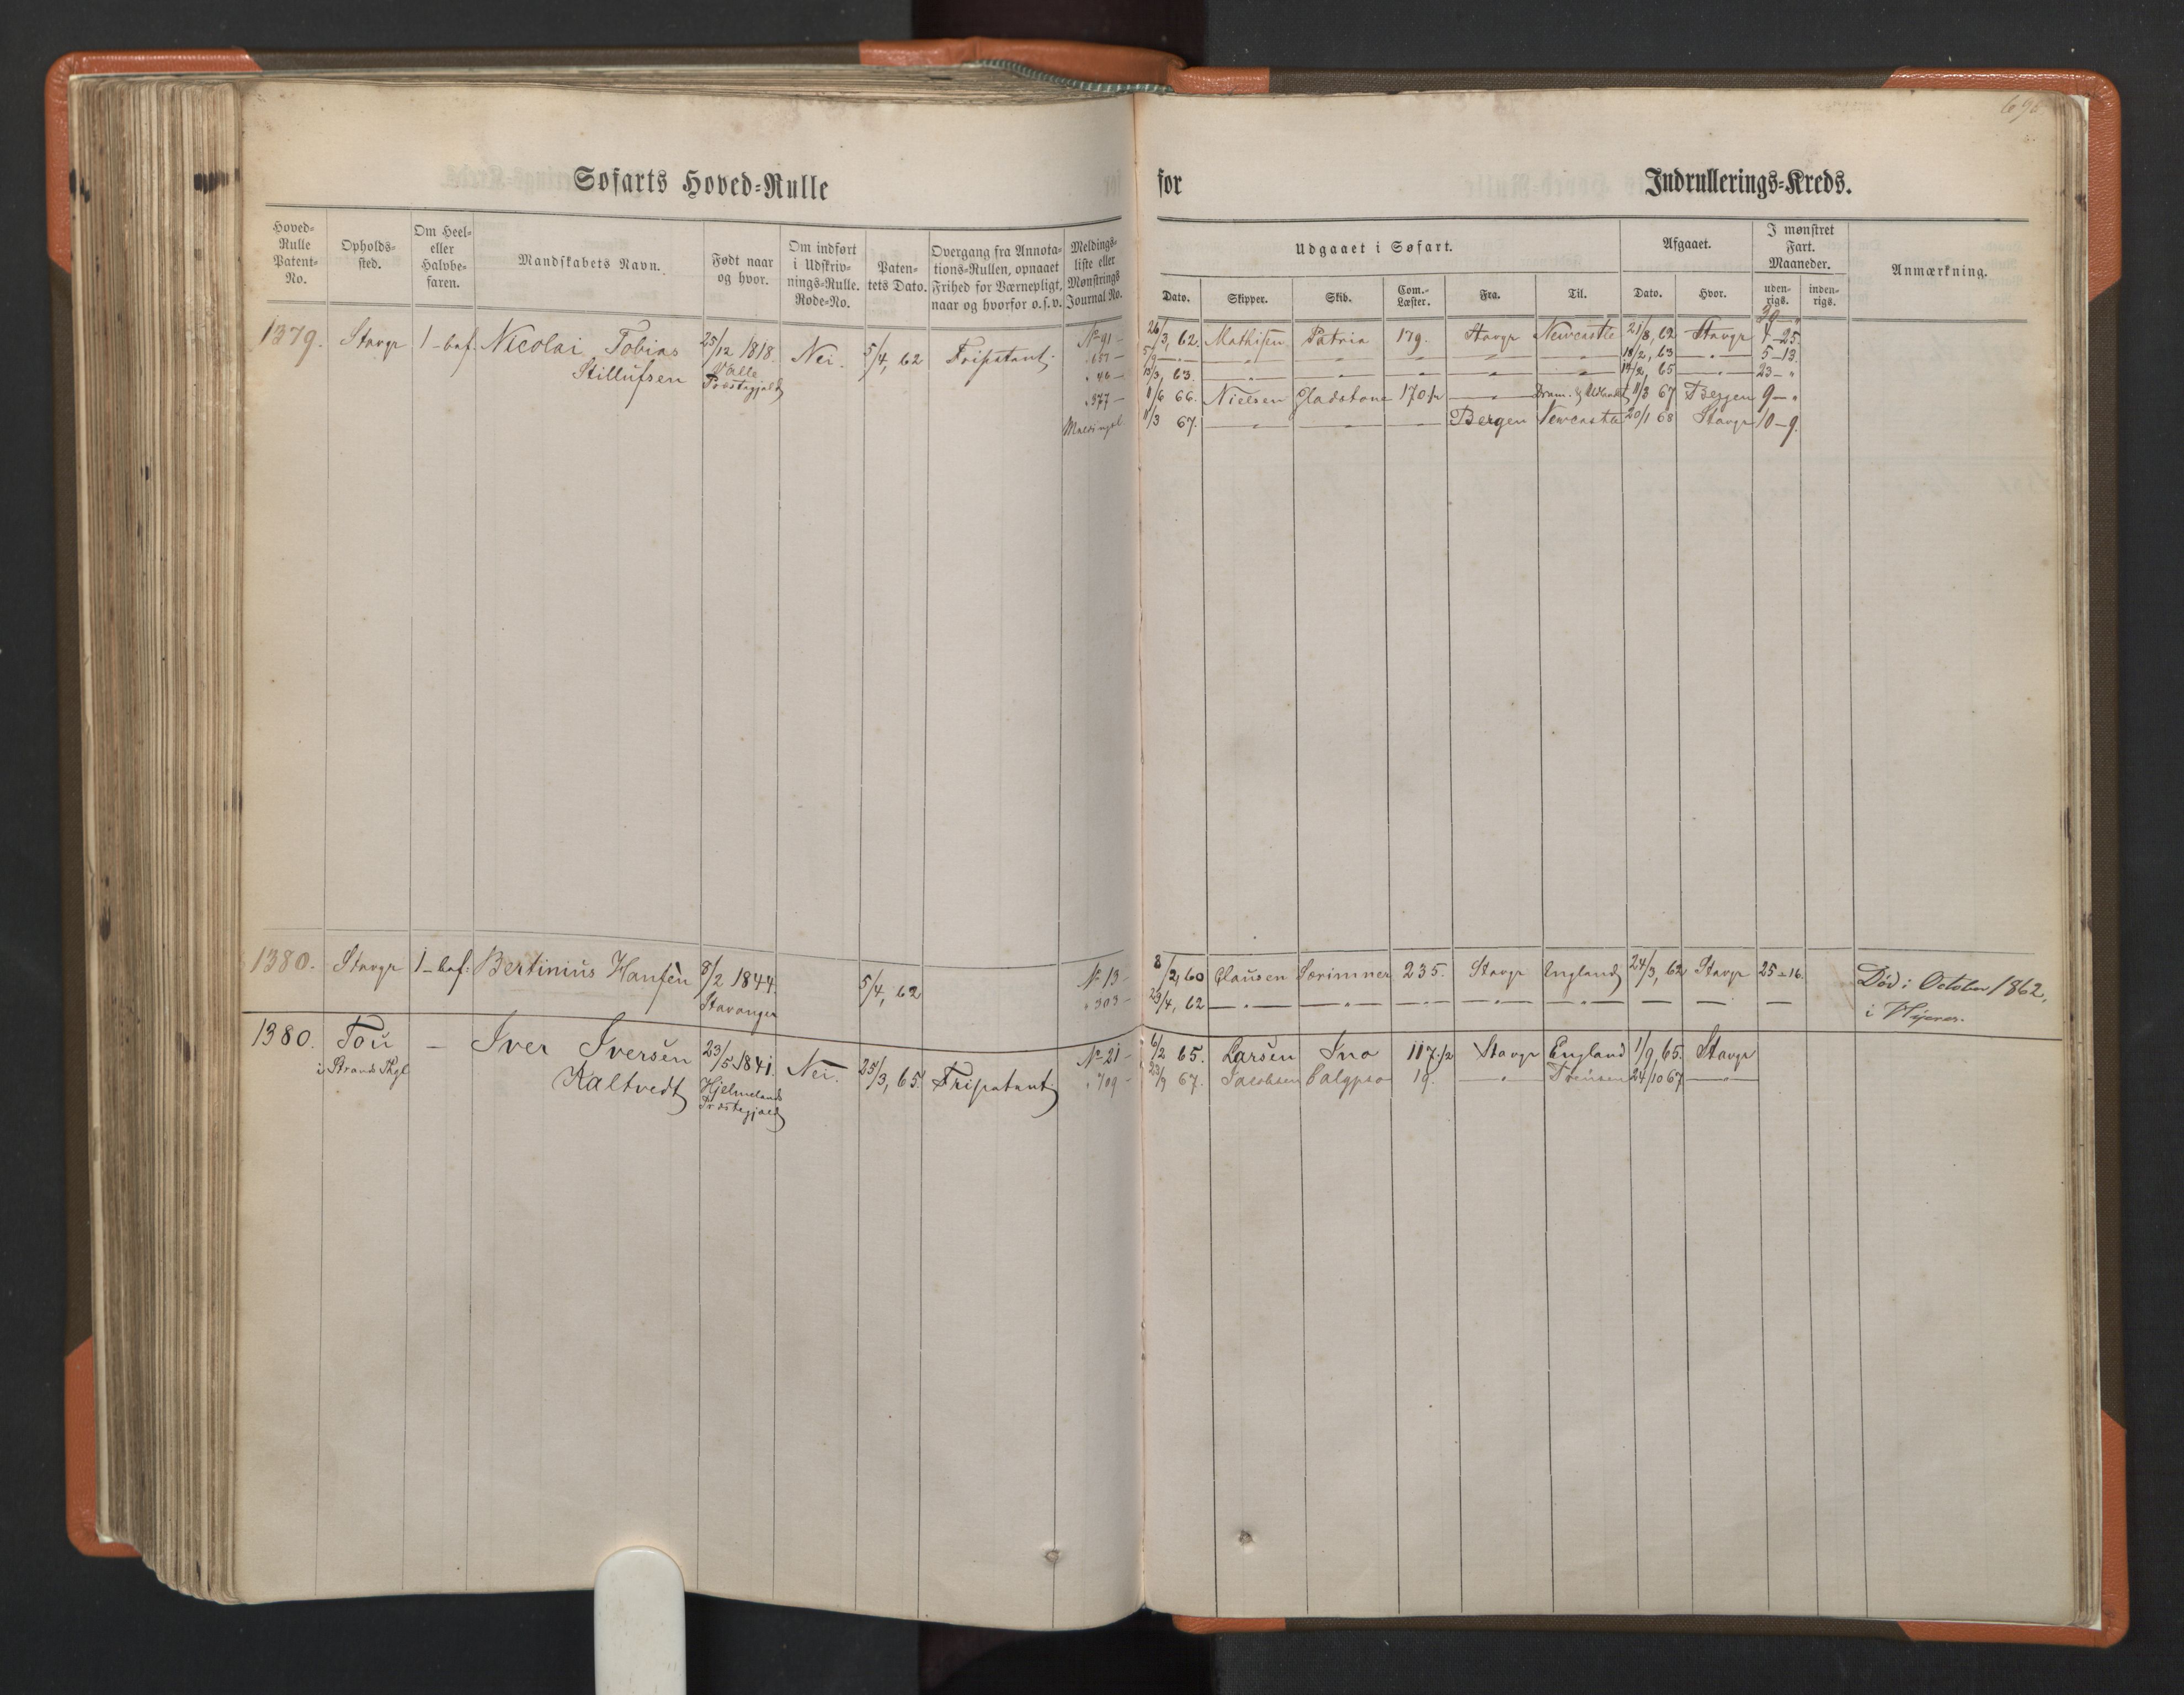 696
Søfarts Hoved-Rulle
for
Indrullerings-Kreds.
Hoved-Rulle Patent-No.
Opholds-sted.
Om Heel- eller Halvbe-faren.
Mandskabets Navn.
Født naar og hvor.
Om indført i Udskriv-nings-Rulle. Rode-No.
Paten-tets Dato.
Overgang fra Annota-tions-Rullen, opnaaet Frihed for Værnepligt, naar og hvorfor o.s.v.
Meldings-liste eller Mønstrings Journal No.
Udgaaet i Søfart.
Afgaaet.
I mønstret Fart. Maaneder.
Anmærkning.
Dato. Skipper. Skib. Com.-Læster. Fra. Til. Dato. Hvor. uden-rigs. inden-rigs.
1379. Stavgr 1-baf. Nicolai Tobias 25/12 1818. Nei. 5/4, 62 Fripatent. No 91 –
Stillufsen Valle Præstegjeld
" 46 –
" 377 –
Meldingsl.
30 – "
26/3, 62. Mathisen Patria 179. Stavgr Newcastle 21/8, 62 Stavgr 4-25.
5/9 – " – – " – – " – – " – – " – – " – 18/2, 63 – " – 5-13.
13/3, 63. – " – – " – – " – – " – – " – 14/2, 65 – " – 23 – "
1/6 66. Nielsen Gladstone 170½ – " – Dram. 11/3 67 Bergen 9 – "
11/3 67. – " – – " – – " – Bergen Newcastle 20/1 68 Stavgr 10-9.
1380. Stavgr 1-baf: Bertinius Hansen 8/2 1844. 5/4, 62 No 13 –
Stavanger " 303 –
8/2, 60 Clausen Særimner 235. Stavgr England 24/3, 62 Stavgr 25-16. Død i October 1862,
23/4, 62 – " – – " – – " – – " – – " – – – –
i
1380. Tou – Iver Iversen 23/5 1841. Nei. 25/3, 65. Fripatent. No 21 –
i Strands Pgl Kaltvedt Hjelmelands Præstegjeld " 709 –
6/2 65. Larsen Ino 117½ Stavgr England 1/9, 65. Stavgr
23/9 67. Jacobsen Calypso 19. – " – 24/10 67 – " –